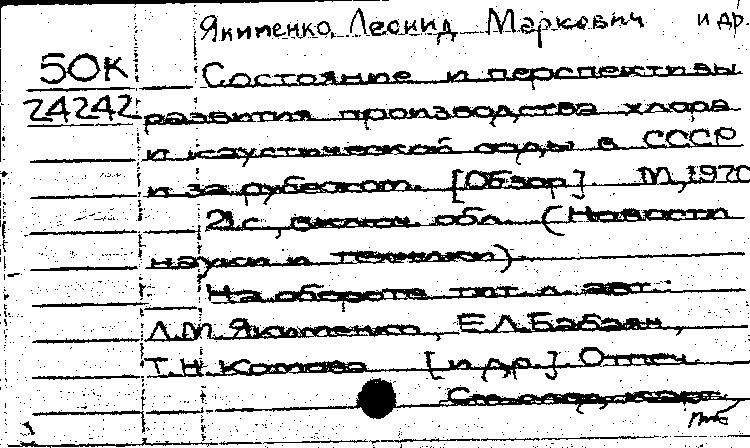 Якименко, Леонид Маркович и др.
50К Состояние и перспективы
24242 развития производства хлора
и каустической соды в СССР
и за рубежом. [Обзор]. М., 1970
21с., включ. обл. (Новости
науки и техники).
На обороте тит. л. авт.:
Л.М. Якименко, Е.Л. Бабаян,
Т.Н. Котова [и др.]. Отпеч.
См. след. карт.